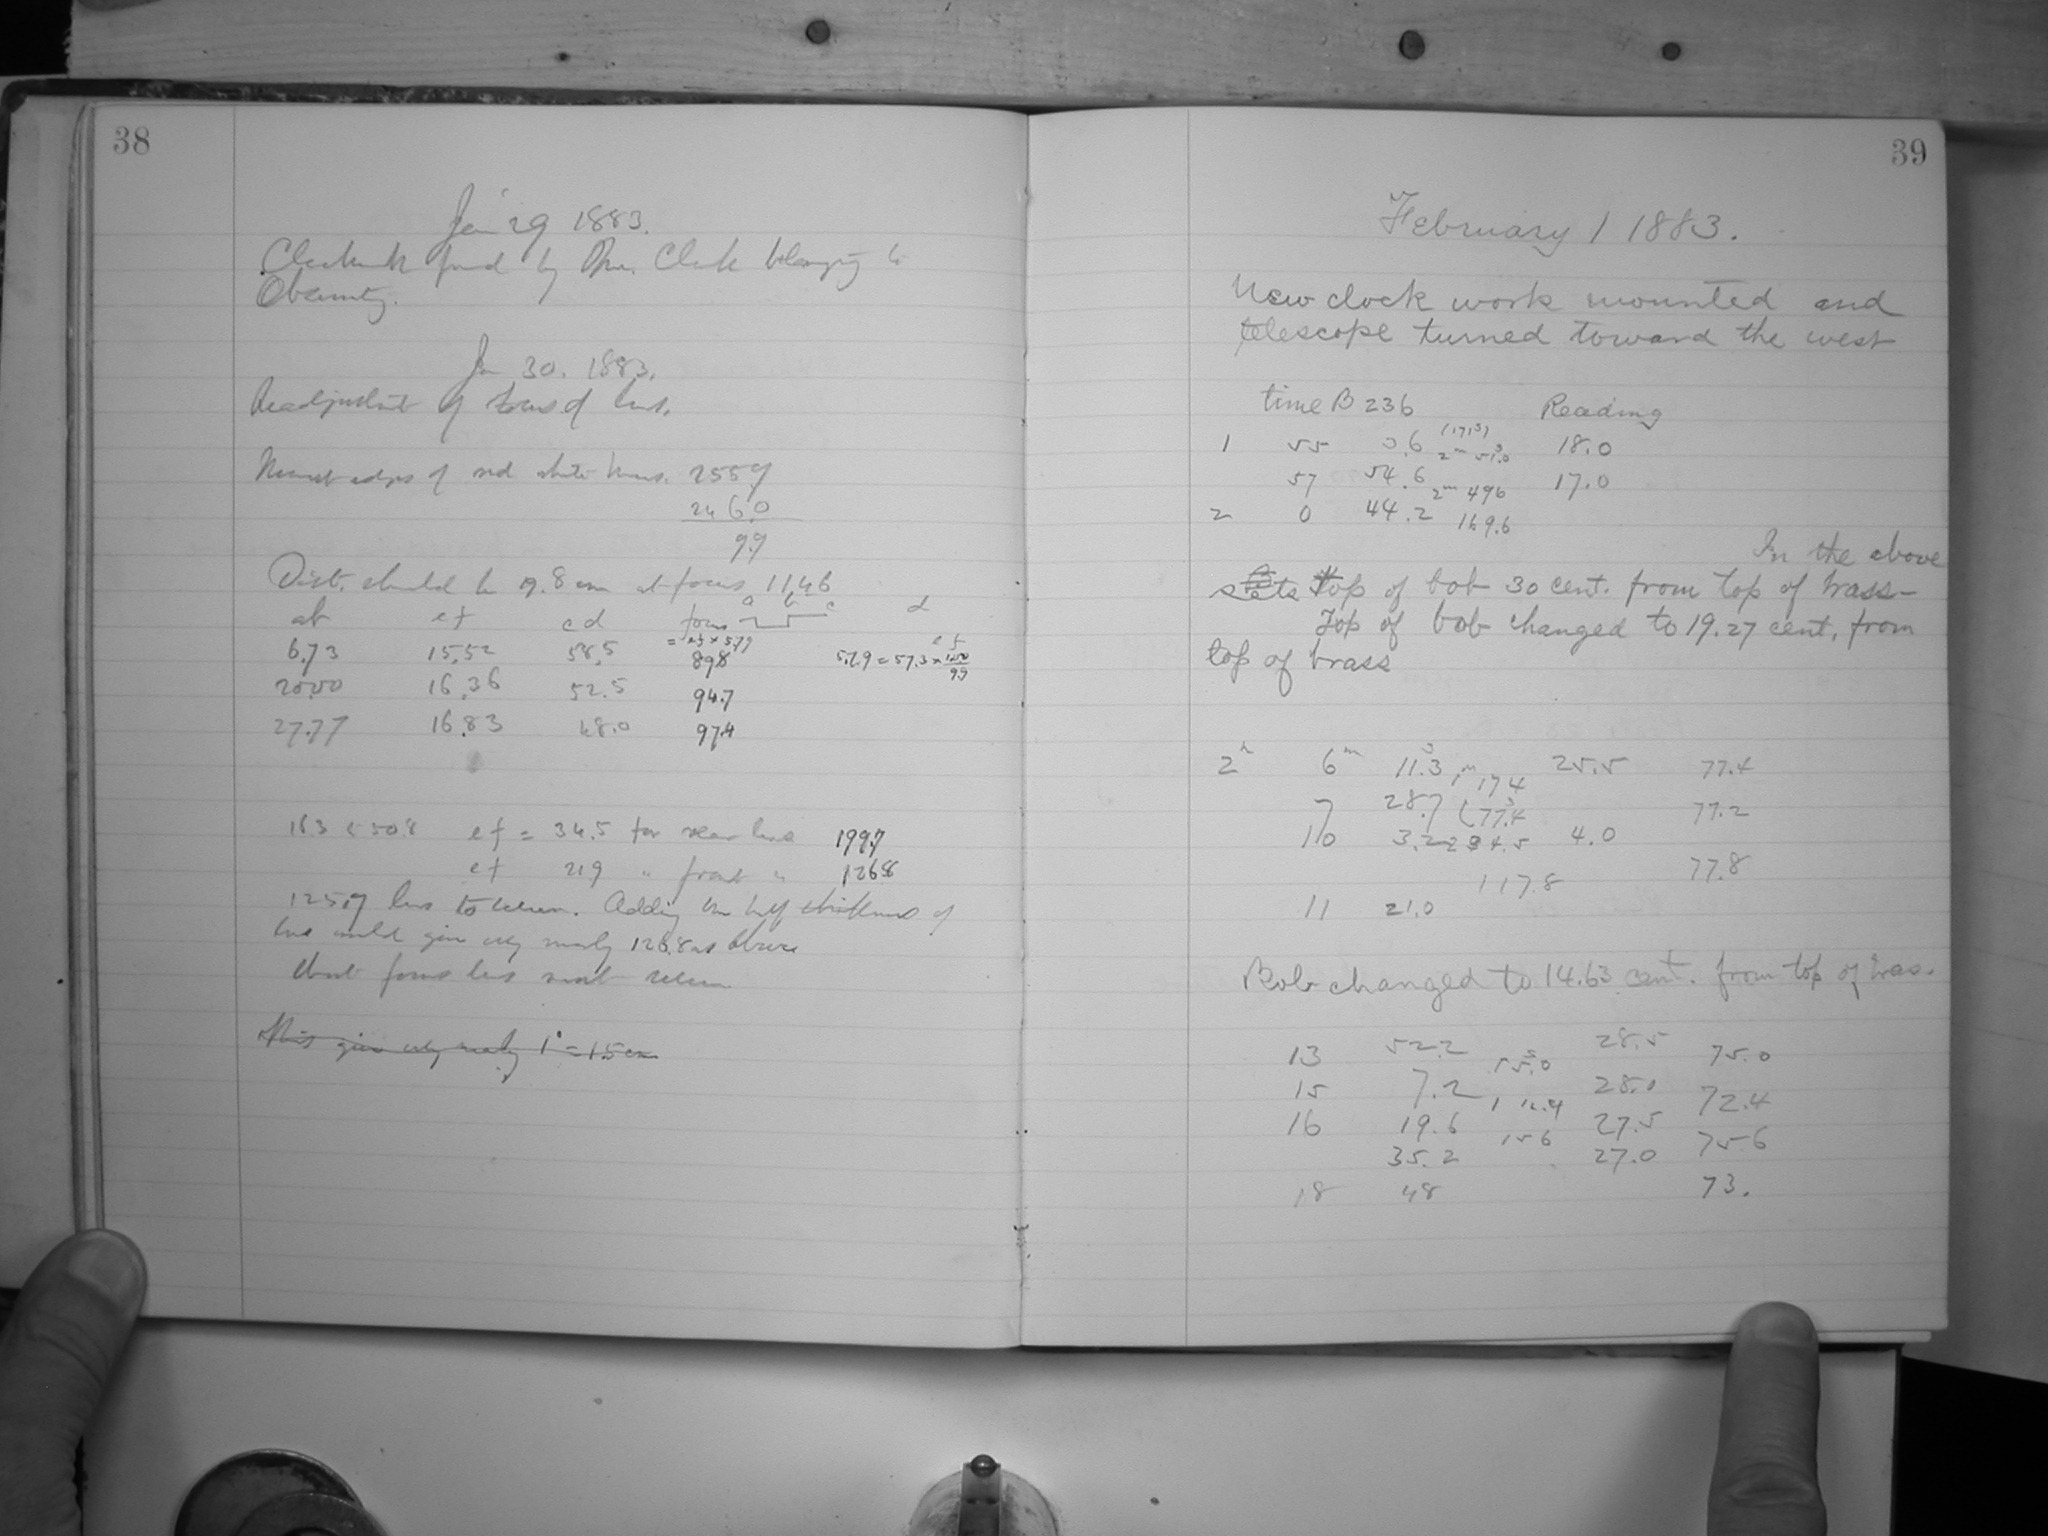 38
Jan 29 1883.
Clockwork found by Mr. Clark belonging to
Observatory.
Jan 30. 1883.
Readjustment of focus of lens.
Nearest edges of red white lines. 255.9
246.0
9.9
Dist. should be 19.8 cm at focus 11,46
a b c d
ab ef cd focus
= ef x 5.79
6.73 15.52 58.5 898 57.9 = 57.3 x
20.00 16.36 52.5 94.7
27.77 16.83 48.0 97.4
183 50.8 ef = 34.5 for rear lens 199.7
ef 21.9 " front " 126.8
125.9 lens to screen. Adding one half thickness of
lens would give very nearly 126.8 as above
short focus lens next screen
This gives very nearly 1° = 1.5 cm
39
February 1 1883.
New clock work mounted and
telescope turned toward the west
time B 236 Reading
1 55 3.6 (171s) 2m 51.0 18.0
57 54.6 2m 49 6 17.0
2 0 44.2 169.6
In the above
sets top of bob 30 cent. from top of brass—
Top of bob changed to 19.27 cent. from
top of brass
2h 6m 11.3s 1m 17 4 25.5 77.4
7 28.7 (77.4 77.2
10 3.2 234.5 4.0
117.8 77.8
11 21.0
Bob changed to 14.63 cent. from top of bras.
13 52.2 28.5 75.0
15 7.2 28.0 72.4
1 12.4
16 19.6 27.5 75 6
15 6
35.2 27.0
18 48 73.